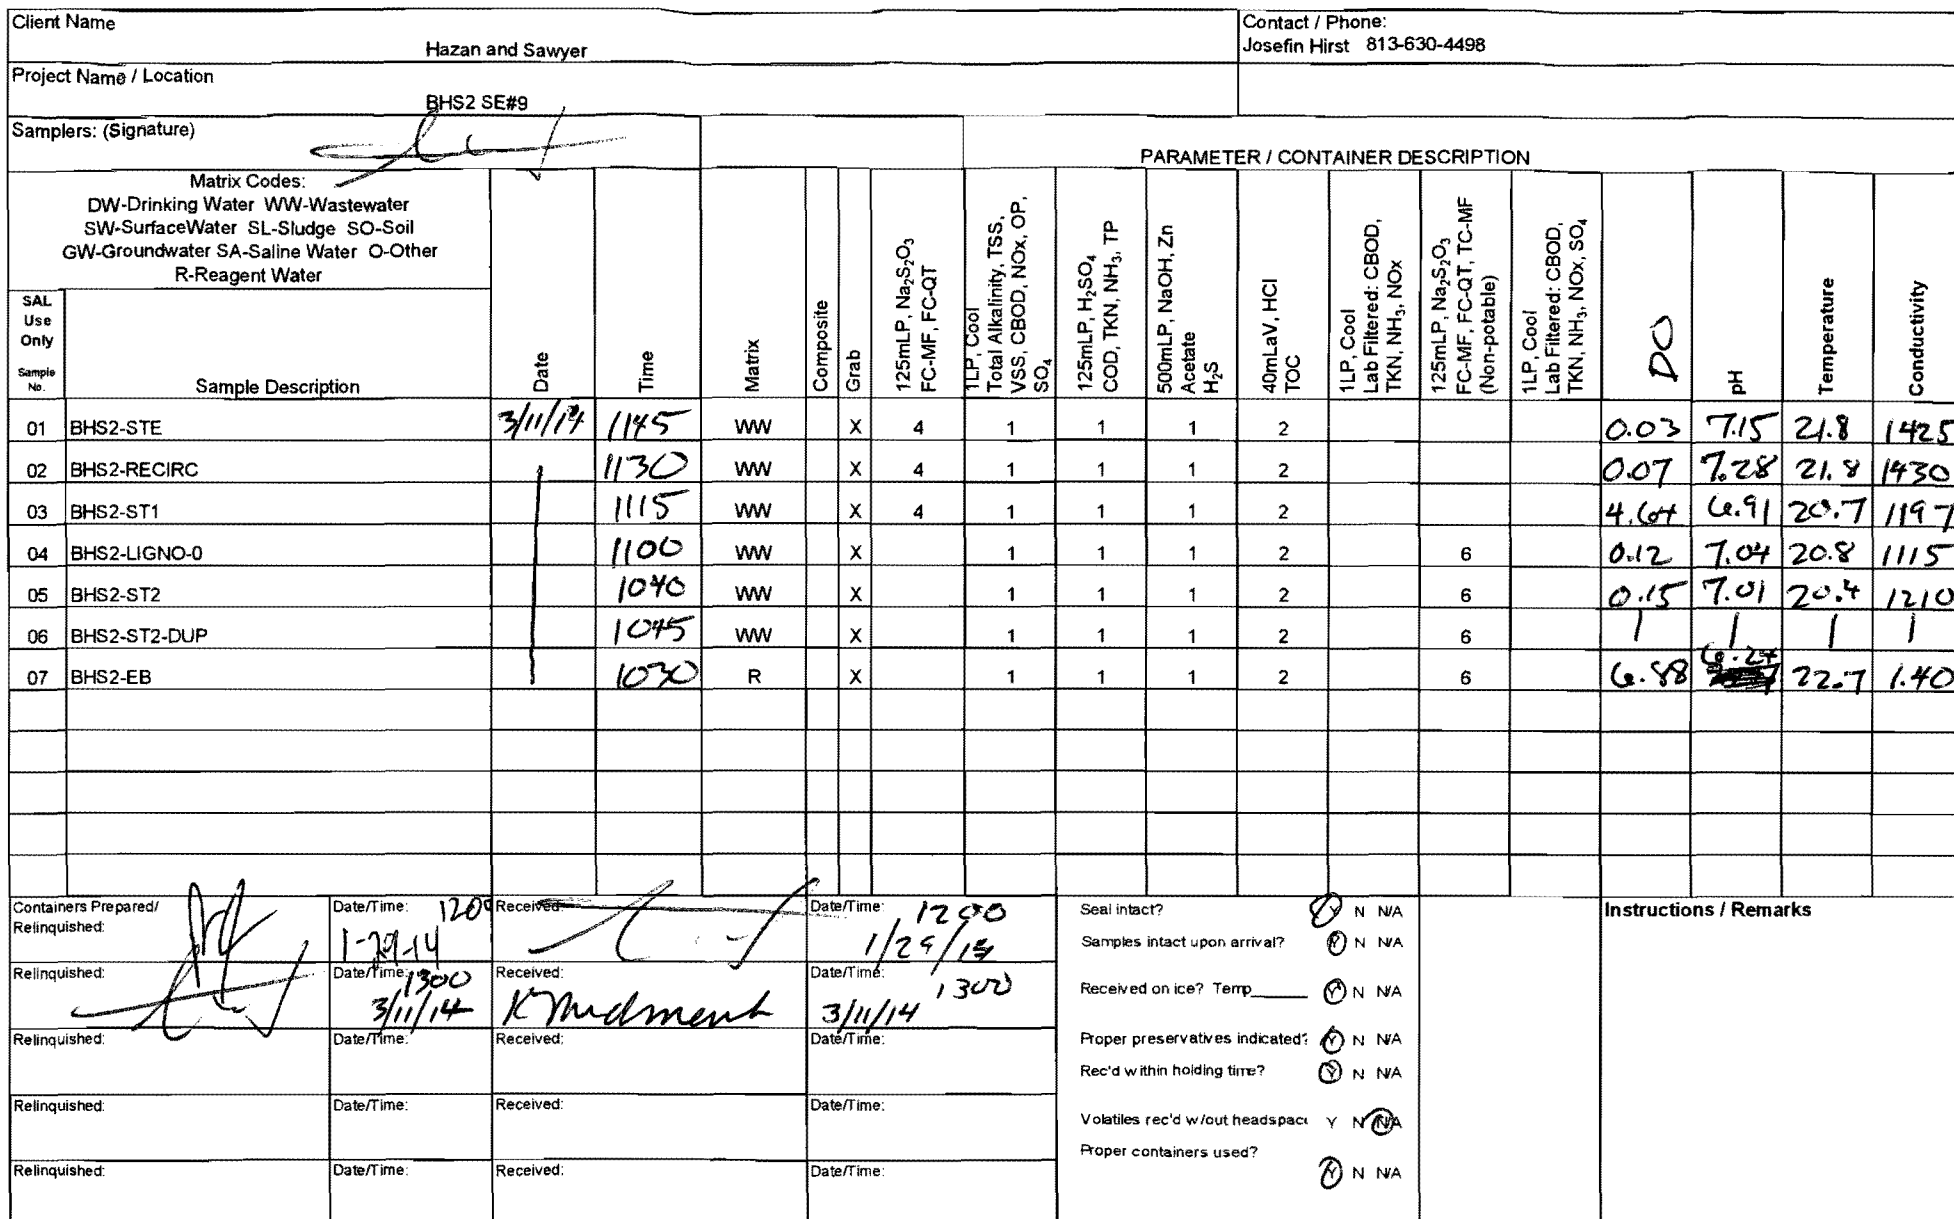 Client Name
Hazan and Sawyer
Contact / Phone:
Josefin Hirst 813-630-4498
Project Name / Location
BHS2 SE#9
Samplers: (Signature)
PARAMETER / CONTAINER DESCRIPTION
Matrix Codes:
DW-Drinking Water WW-Wastewater
SW-SurfaceWater SL-Sludge SO-Soil
GW-Groundwater SA-Saline Water O-Other
R-Reagent Water
SAL
Use
Only
Sample
No.
Sample Description
Date
Time
Matrix
Composite
Grab
125mLP, Na₂S₂O₃
FC-MF, FC-QT
1LP, Cool
Total Alkalinity, TSS,
VSS, CBOD, NOx, OP,
SO₄
125mLP, H₂SO₄
COD, TKN, NH₃, TP
500mLP, NaOH, Zn
Acetate
H₂S
40mLaV, HCl
TOC
1LP, Cool
Lab Filtered: CBOD,
TKN, NH₃, NOx
125mLP, Na₂S₂O₃
FC-MF, FC-QT, TC-MF
(Non-potable)
1LP, Cool
Lab Filtered: CBOD,
TKN, NH₃, NOx, SO₄
DO
pH
Temperature
Conductivity
01 BHS2-STE 3/11/14 1145 WW X 4 1 1 1 2 0.03 7.15 21.8 1425
02 BHS2-RECIRC 1130 WW X 4 1 1 1 2 0.07 7.28 21.8 1430
03 BHS2-ST1 1115 WW X 4 1 1 1 2 4.64 6.91 20.7 1197
04 BHS2-LIGNO-0 1100 WW X 1 1 1 2 6 0.12 7.04 20.8 1115
05 BHS2-ST2 1040 WW X 1 1 1 2 6 0.15 7.01 20.4 1210
06 BHS2-ST2-DUP 1045 WW X 1 1 1 2 6
07 BHS2-EB 1030 R X 1 1 1 2 6 6.88 6.24 22.7 1.40
Containers Prepared/
Relinquished:
Date/Time: 1200
1-29-14
Received:
Date/Time: 1200
1/29/14
Relinquished:
Date/Time: 1300
3/11/14
Received:
Date/Time: 1300
3/11/14
Relinquished:
Date/Time:
Received:
Date/Time:
Relinquished:
Date/Time:
Received:
Date/Time:
Relinquished:
Date/Time:
Received:
Date/Time:
Seal intact? Y N N/A
Samples intact upon arrival? Y N N/A
Received on ice? Temp______ Y N N/A
Proper preservatives indicated? Y N N/A
Rec'd within holding time? Y N N/A
Volatiles rec'd w/out headspac Y N N/A
Proper containers used?
Y N N/A
Instructions / Remarks